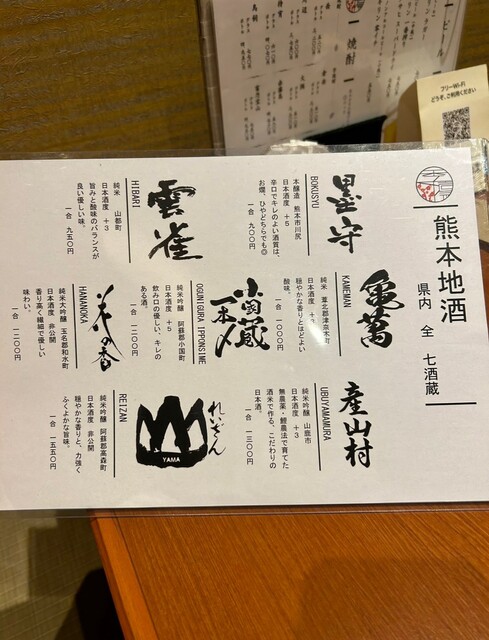 フリーWi-Fi
どうぞ、ご利用ください
一 焼酎 一
熊本地酒
県内 全 七酒蔵
墨守
BOKUSYU
本醸造 熊本市川尻
日本酒度 +5
辛口でキレのよい酒質は、
お燗、ひやどちらでも◎
一合 九〇〇円
亀萬
KAMEMAN
純米 葦北郡津奈木町
日本酒度 +3
穏やかな香りとほどよい
酸味。
一合 一〇〇〇円
産山村
UBUYAMAMURA
純米吟醸 山鹿市
日本酒度 +3
無農薬・鯉農法で育てた
酒米で作る、こだわりの
日本酒。
一合 一三〇〇円
雲雀
HIBARI
純米 山都町
日本酒度 +3
旨みと酸味のバランスが
良い優しい味。
一合 九五〇円
小国蔵
一本〆
OGUNIGURA IPPONSINE
純米吟醸 阿蘇郡小国町
日本酒度 +5
飲み口の優しい、キレの
ある酒。
一合 一一〇〇円
花の香
HANANOKA
純米大吟醸 玉名郡和水町
日本酒度 非公開
香り高く繊細で優しい
味わい。
一合 一二〇〇円
れいざん
YAMA
REIZAN
純米吟醸 阿蘇郡高森町
日本酒度 非公開
穏やかな香りと、力強く
ふくよかな旨味。
一合 一五五〇円